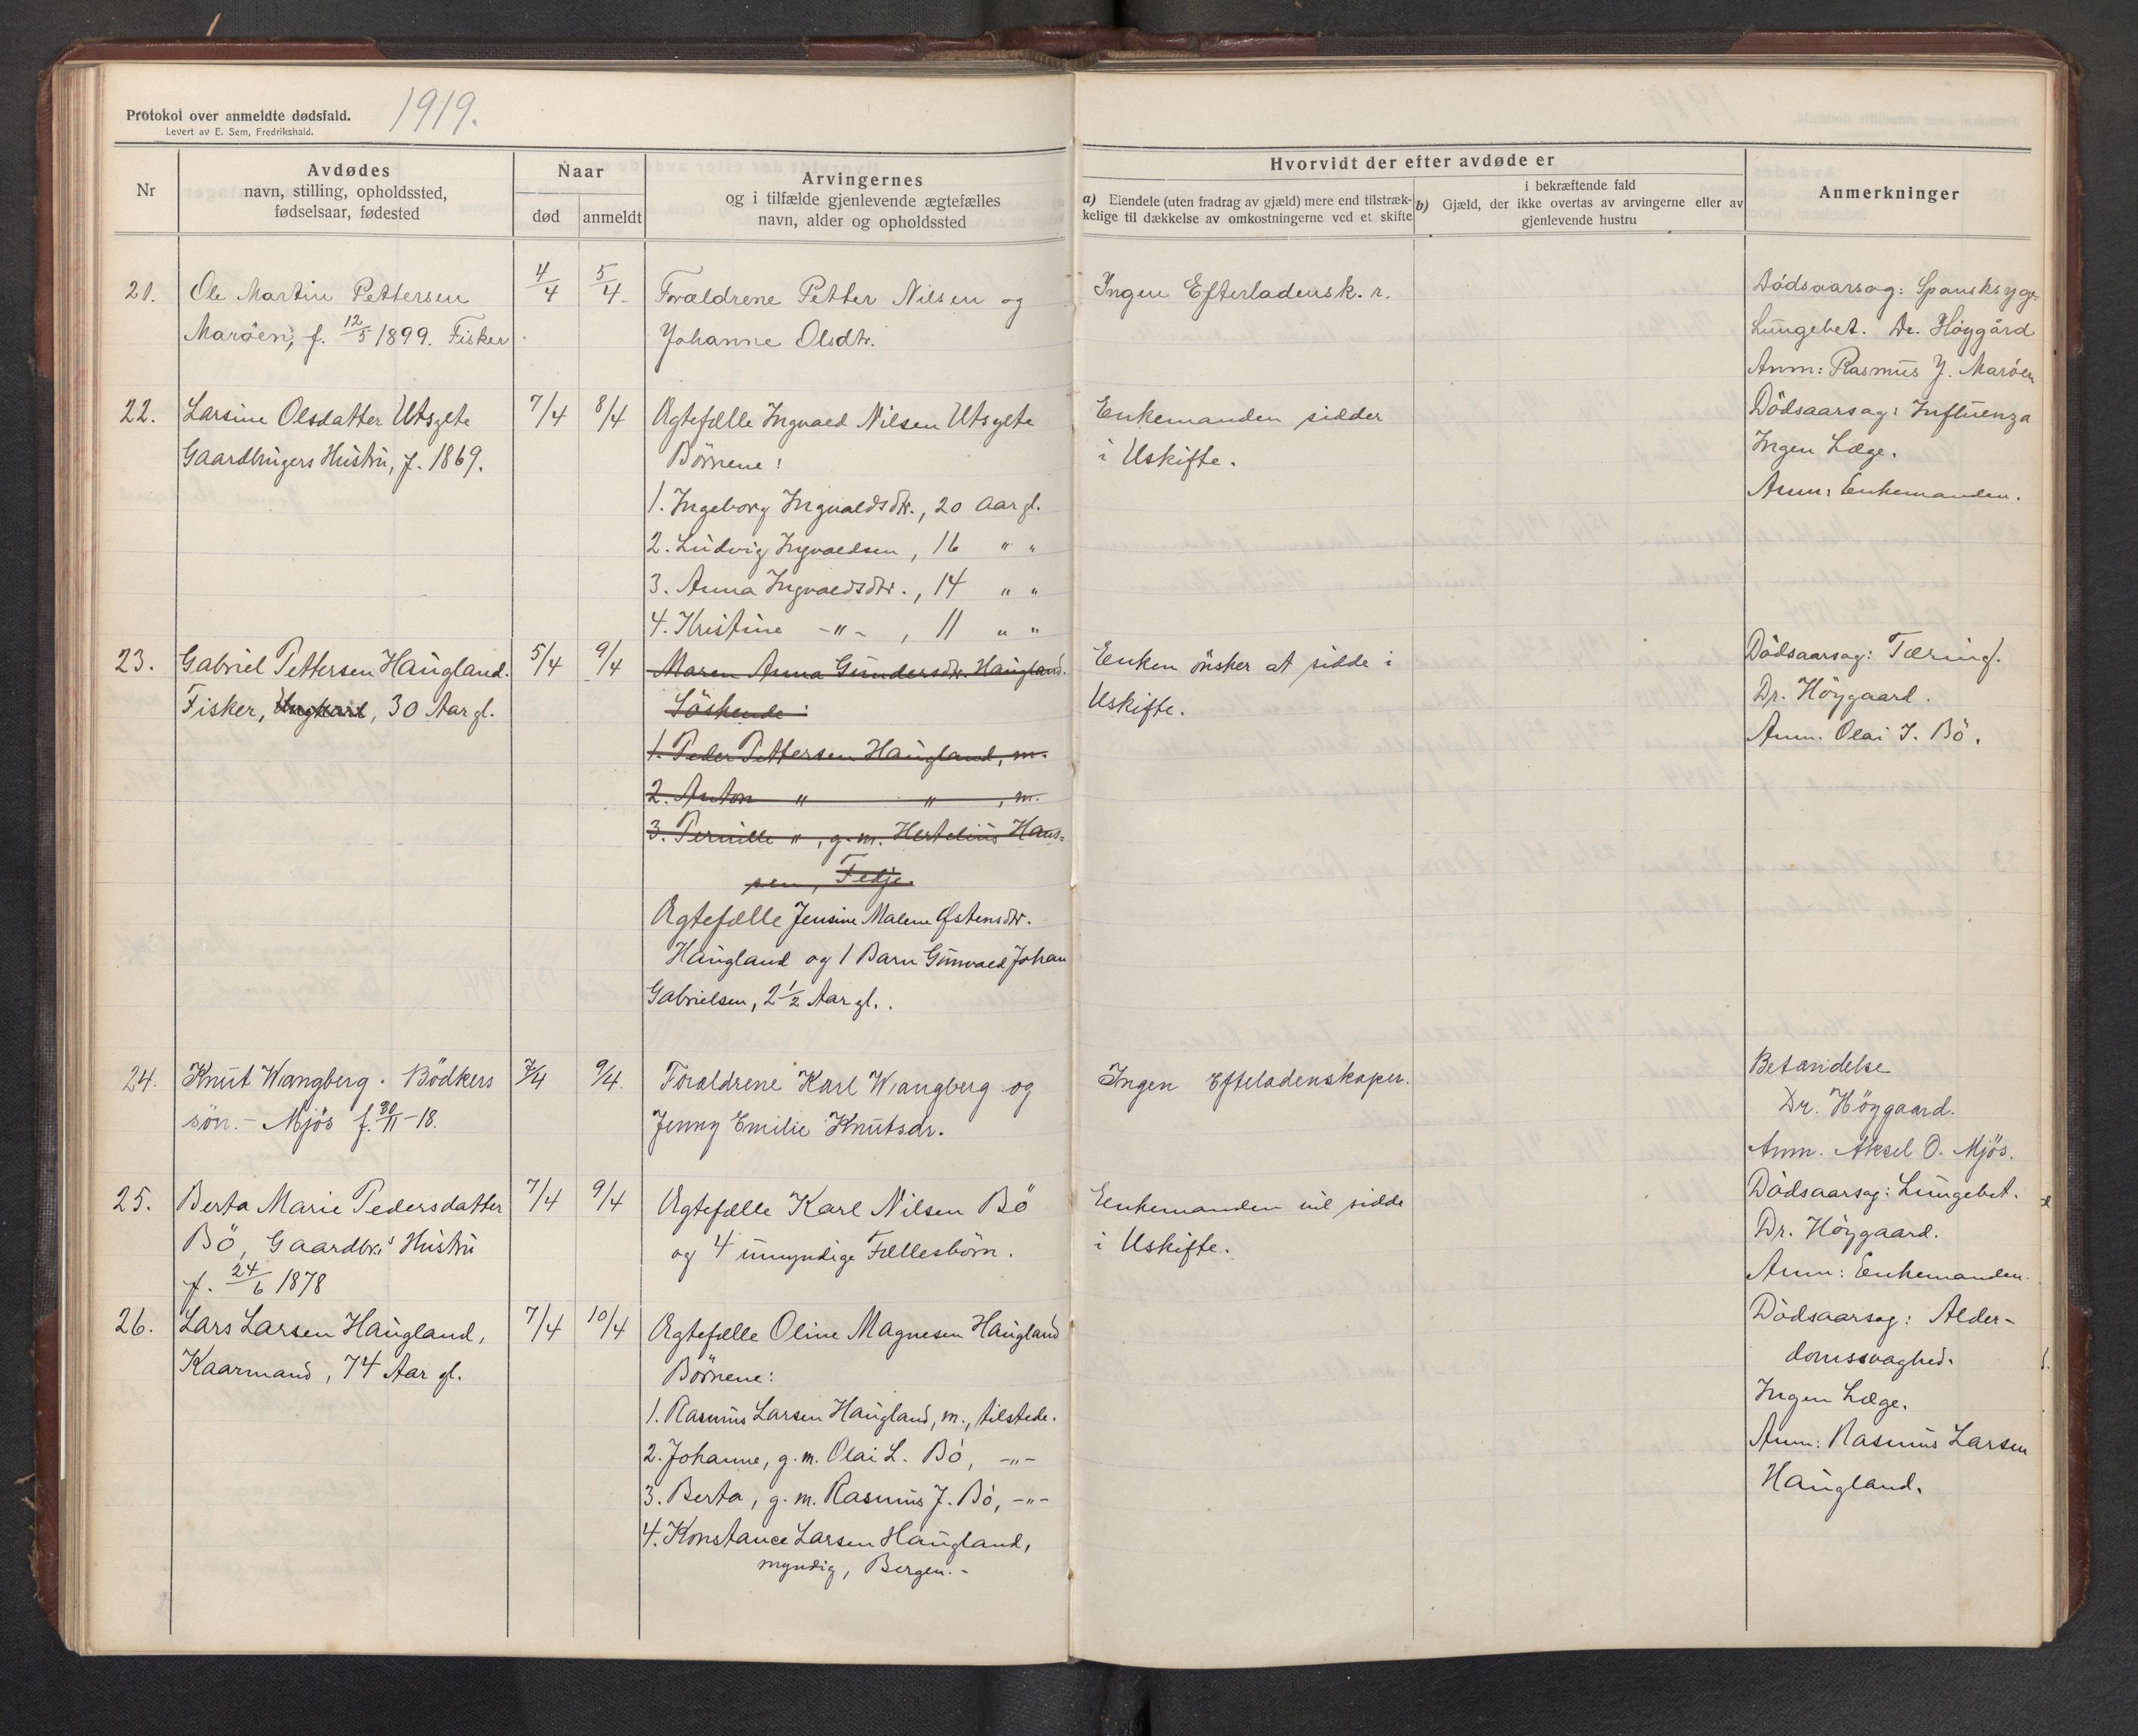 Protokol over anmeldte dødsfald.
Levert av E. Sem, Fredrikshald.
1919.
Nr
Avdødes
navn, stilling, opholdssted,
fødselsaar, fødested
Naar
død
anmeldt
Arvingernes
og i tilfælde gjenlevende ægtefælles
navn, alder og opholdssted
Hvorvidt der efter avdøde er
a) Eiendele (uten fradrag av gjæld) mere end tilstræk-
kelige til dækkelse av omkostningerne ved et skifte
i bekræftende fald
b) Gjæld, der ikke overtas av arvingerne eller av
gjenlevende hustru
Anmerkninger
21.
Ole Martin Pettersen
Maröen, f. 12/5 1899. Fisker
4/4
5/4
Forældrene Petter Nilsen og
Johanne Olsdtr.
Ingen Efterladensk. r.
Dödsaarsag: Spansksyge=
Lungebet. Dr. Höygård
Anm: Rasmus J. Maröen
22.
Larsine Olsdatter Utsylte
Gaardbrugers Hustru, f. 1869.
7/4
8/4
Ægtefælle Ingvald Nilsen Utsylte
Börnene:
1. Ingeborg Ingvaldsdtr., 20 Aar gl.
2. Ludvig Ingvaldsen, 16 " "
3. Anna Ingvaldsdtr., 14 " "
4. Kristine -"- , 11 " "
Enkemanden sidder
i Uskifte.
Dödsaarsag: Influenza
Ingen Læge.
Anm: Enkemanden.
23.
Gabriel Pettersen Haugland.
Fisker, Ungkarl, 30 Aar gl.
5/4
9/4
Maren Anna Gundersdtr. Haugland.
Söskende:
1. Peder Pettersen Haugland, m.
2. Anton " " , m.
3. Pernille " , g. m. Hertelius Hans=
sen, Fedje.
Ægtefælle Jensine Malene Østensdtr.
Haugland og 1 Barn Gunvald Johan
Gabrielsen, 2 1/2 Aar gl.
Enken önsker at sidde i
Uskifte.
Dödsaarsag: Tæring.
Dr. Höygaard.
Anm. Olai J. Bö.
24.
Knut Wangberg. Bödkers
sön. - Mjös f. 30/11-18.
7/4
9/4.
Forældrene Karl Wangberg og
Jenny Emilie Knutsdr.
Ingen Efteladenskaper.
Betændelse
Dr. Höygaard.
Anm. Aksel O. Mjös.
25.
Berta Marie Pedersdatter
Bö, Gaardbr.s Hustru
f. 24/6 1878
7/4
9/4
Ægtefælle Karl Nilsen Bö
og 4 umyndige Fællesbörn.
Enkemanden vil sidde
i Uskifte.
Dödsaarsag: Lungebet.
Dr. Höygaard.
Anm: Enkemanden.
26.
Lars Larsen Haugland,
Kaarmand, 74 Aar gl.
7/4
10/4
Ægtefælle Oline Magnesen Haugland
Börnene:
1. Rasmus Larsen Haugland, m., tilstede.
2. Johanne, g. m. Olai L. Bö, -"-
3. Berta, g. m. Rasmus J. Bö, -"-
4. Konstance Larsen Haugland,
myndig, Bergen. -
Dödsaarsag: Alder-
domssvaghed.
Ingen Læge.
Anm: Rasmus Larsen
Haugland.